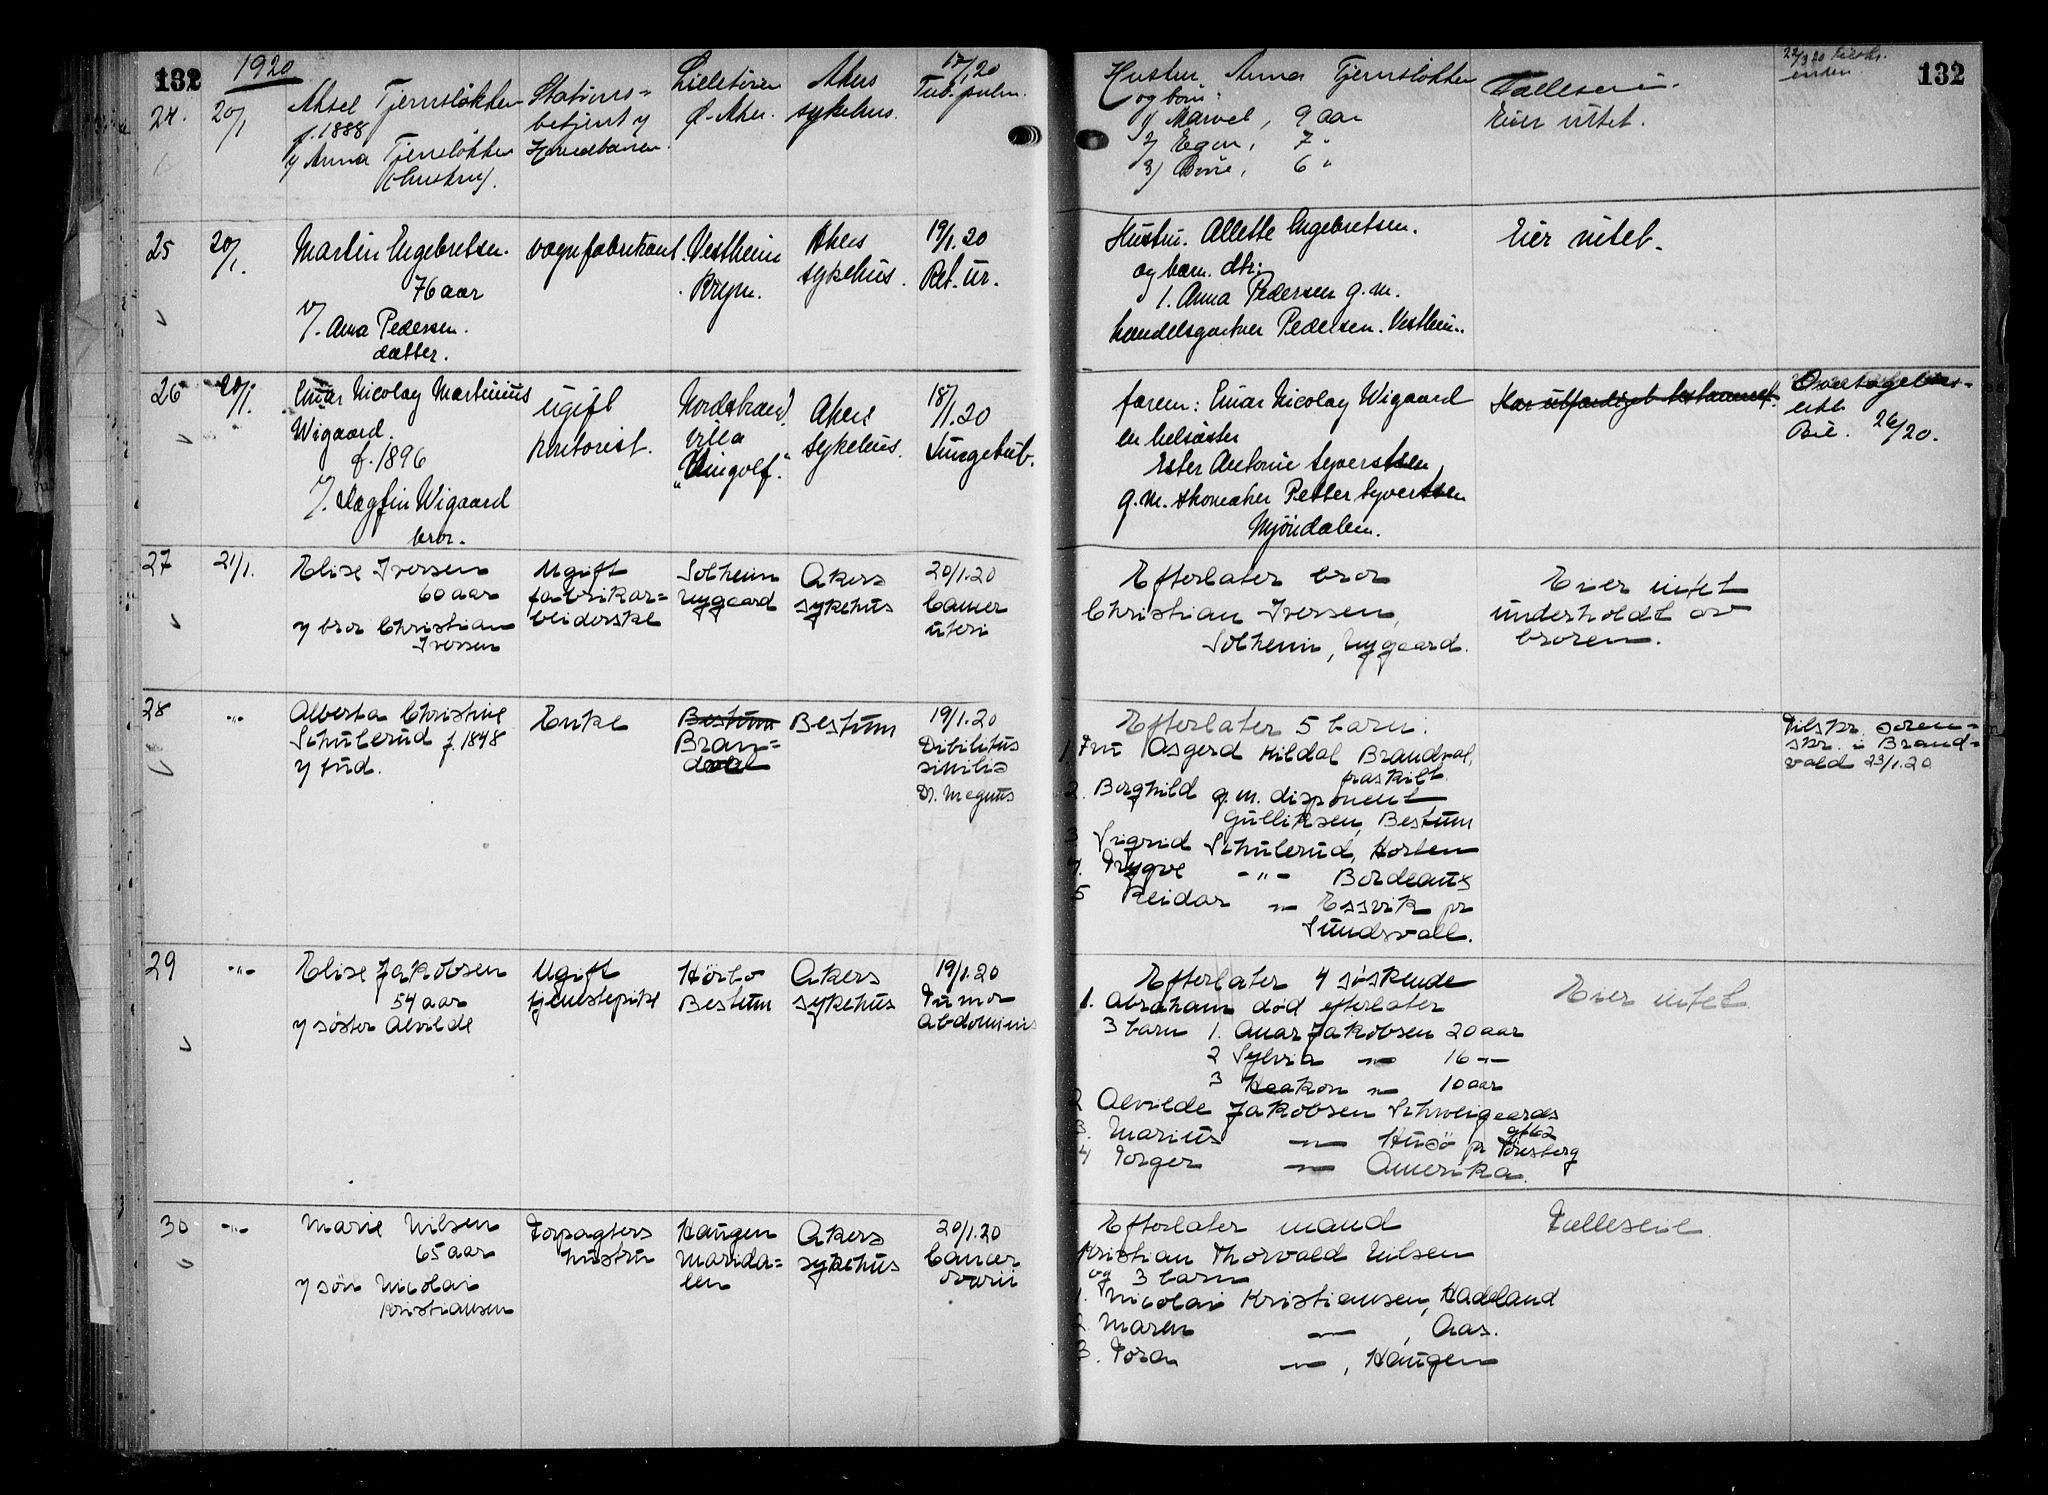 132
1920
24. 20/1
Aksel Tjernsløkken
f. 1888
v/ Anna Tjernsløkken
(hustru).
Stations=
betjent v/
Hovedbanen
Lilletøien
Ø. Aker.
Akers
sykehus.
17/1 20
Tub. pulm.
Hustru Anna Tjernsløkken
og barn:
1/ Marvel, 9 aar
2/ Egon, 7 "
3/ Börre, 6 "
Fælleseie.
Eier intet.
132
25 20/1.
Martin Engebretsen.
76 aar
v/. Anna Pedersen.
datter.
vognfabrikant.
Vestheim
Bryn.
Akers
sykehus.
19/1.20
Ret. ur.
Hustru. Allette Engebretsen.
og barn. dtr:
1. Anna Pedersen g.m.
handelsgartner Pedersen. Vestheim.
Eier intet.
26 20/1.
Einar Nicolay Martinius
Wigaard.
f. 1896
v/. Dagfin Wigaard
bror.
ugift
kontorist.
Nordstrand.
villa
"Vingolf".
Akers
sykehus.
18/1.20
Lungetub.
faren: Einar Nicolay Wigaard
en helsøster
Ester Antonie Syvertsen
g.m. skomaker Petter Syvertsen
Mjöndalen.
Har utfærdiget testament.
Overtagelses-
erkl.
Bil. 26/20.
27 21/1.
Elise Iversen
60 aar
v/ bror Christian
Iversen
Ugift
fabrikar=
beiderske
Solheim
Nygaard
Akers
sykehus
20/1.20
Cancer
uteri
Efterlater bror
Christian Iversen,
Solheim, Nygaard.
Eier intet
underholdt av
broren.
28 -"-
Alberta Christine
Schulerud f. 1848
v/ bud.
Enke
Bestum
Bran=
dval
Bestum
19/1.20
Dibilitus
sinilis
Dr. Magnus
Efterlater 5 barn:
1. Fru Asgerd Kildal Brandval,
fraskilt
2. Borghild g.m. disponent
Gulliksen, Bestum
3 Sigrid Schulerud, Horten
4. Trygve -"- Bordeaux
5 Reidar -"- Essvik pr
Sundsvall.
Tilskr. soren=
skr. i Brand=
vald 23/1.20
29 -"-
Elise Jakobsen
54 aar
v/ søster Alvilde
Ugift
tjenestepike
Hörbo
Bestum
Akers
sykehus
19/1.20
Tumor
abdominis
Efterlater 4 søskende
1. Abraham død efterlater
3 barn 1. Anar Jakobsen 20 aar
2 Sylvia -"- 16 -"-
3 Haakon -"- 10 aar
2 Alvilde Jakobsen Schweigaards
gt 62
3. Marius -"- Husø pr Tønsberg
4 Torger -"- Amerika.
Eier intet
30 -"-
Marie Nilsen
65 aar
v/ søn Nicolai
Kristiansen
Forpagters
hustru
Haugen
Marida=
len
Akers
sykehus
20/1.20
Cancer
ovarii
Efterlater mand
Kristian Thorvald Nilsen
og 3 barn
1. Nicolai Kristiansen, Hadeland
2. Maren -"-, Aas.
3. Tora -"-, Haugen
Fælleseie